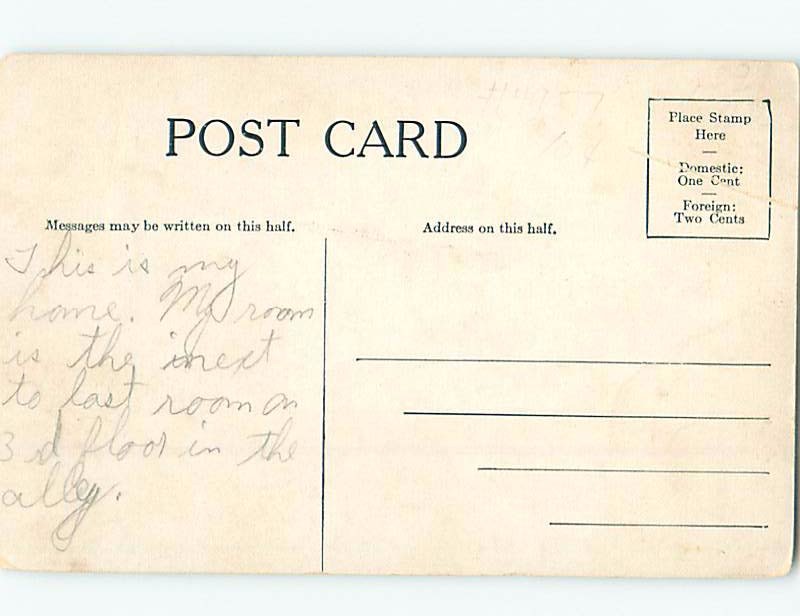 POST CARD
Place Stamp
Here
—
Domestic:
One Cent
—
Foreign:
Two Cents
Messages may be written on this half.
Address on this half.
This is my
home. My room
is the next
to last room on
3d floor in the
ally.